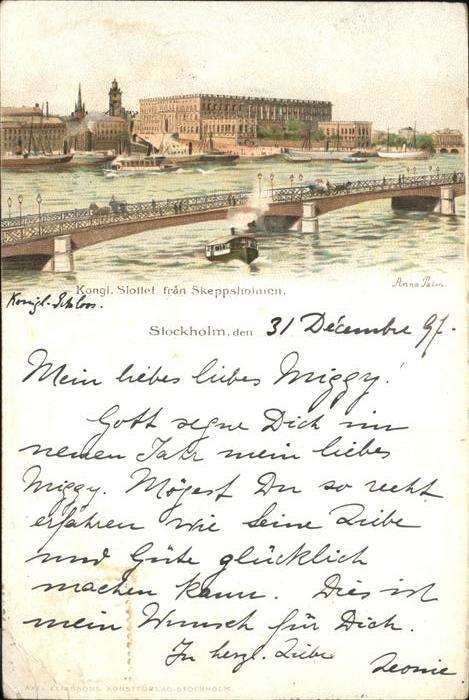 Kongl. Slottet från Skeppsholmen.
Anna Palm
Königl. Schloss.
Stockholm, den 31 Décembre 97.
Mein liebes liebes Miggy!
Gott segne Dich im
neuen Jahr mein liebes
Miggy. Mögest Du so recht
erfahren wie Seine Liebe
und Güte glücklich
machen kann. Dies ist
mein Wunsch für Dich.
In herzl. Liebe
Leonie
AXEL ELIASSONS KONSTFÖRLAG. STOCKHOLM